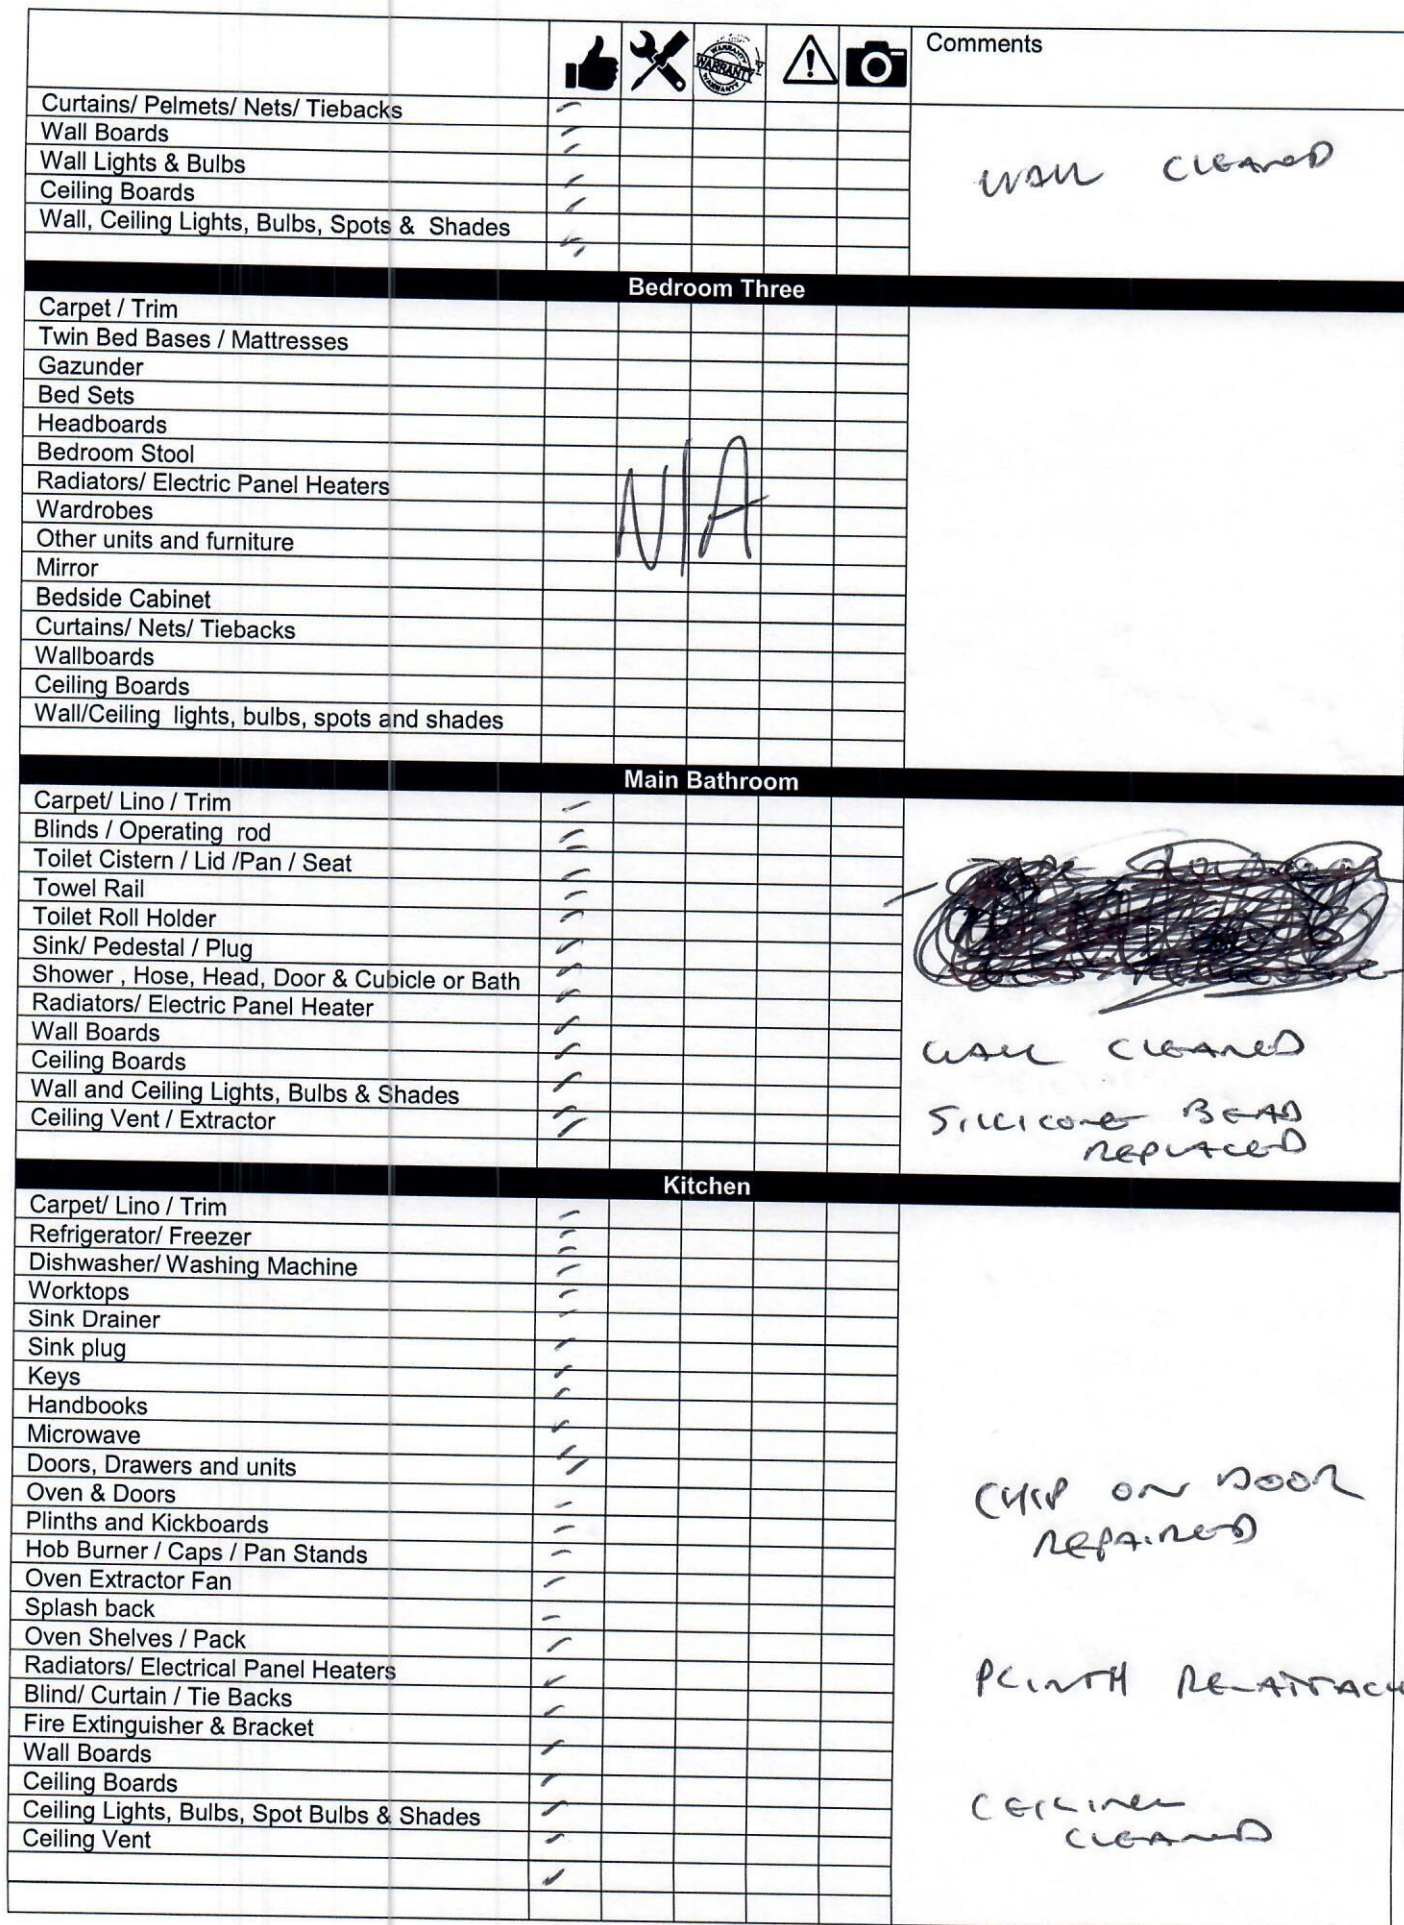 Comments
WARRANTY
Curtains/ Pelmets/ Nets/ Tiebacks
Wall Boards
Wall Lights & Bulbs
WALL CLEANED
Ceiling Boards
Wall, Ceiling Lights, Bulbs, Spots & Shades
Bedroom Three
Carpet / Trim
Twin Bed Bases / Mattresses
Gazunder
Bed Sets
Headboards
Bedroom Stool
Radiators/ Electric Panel Heaters
N/A
Wardrobes
Other units and furniture
Mirror
Bedside Cabinet
Curtains/ Nets/ Tiebacks
Wallboards
Ceiling Boards
Wall/Ceiling lights, bulbs, spots and shades
Main Bathroom
Carpet/ Lino / Trim
Blinds / Operating rod
Toilet Cistern / Lid /Pan / Seat
Towel Rail
Toilet Roll Holder
Sink/ Pedestal / Plug
Shower , Hose, Head, Door & Cubicle or Bath
Radiators/ Electric Panel Heater
Wall Boards
WALL CLEANED
Ceiling Boards
Wall and Ceiling Lights, Bulbs & Shades
Ceiling Vent / Extractor
SILLICONE BEAD
REPLACED
Kitchen
Carpet/ Lino / Trim
Refrigerator/ Freezer
Dishwasher/ Washing Machine
Worktops
Sink Drainer
Sink plug
Keys
Handbooks
Microwave
Doors, Drawers and units
CHIP ON DOOR
Oven & Doors
Plinths and Kickboards
REPAIRED
Hob Burner / Caps / Pan Stands
Oven Extractor Fan
Splash back
Oven Shelves / Pack
Radiators/ Electrical Panel Heaters
PLINTH RE-ATTACH
Blind/ Curtain / Tie Backs
Fire Extinguisher & Bracket
Wall Boards
Ceiling Boards
Ceiling Lights, Bulbs, Spot Bulbs & Shades
CEILING
CLEANED
Ceiling Vent